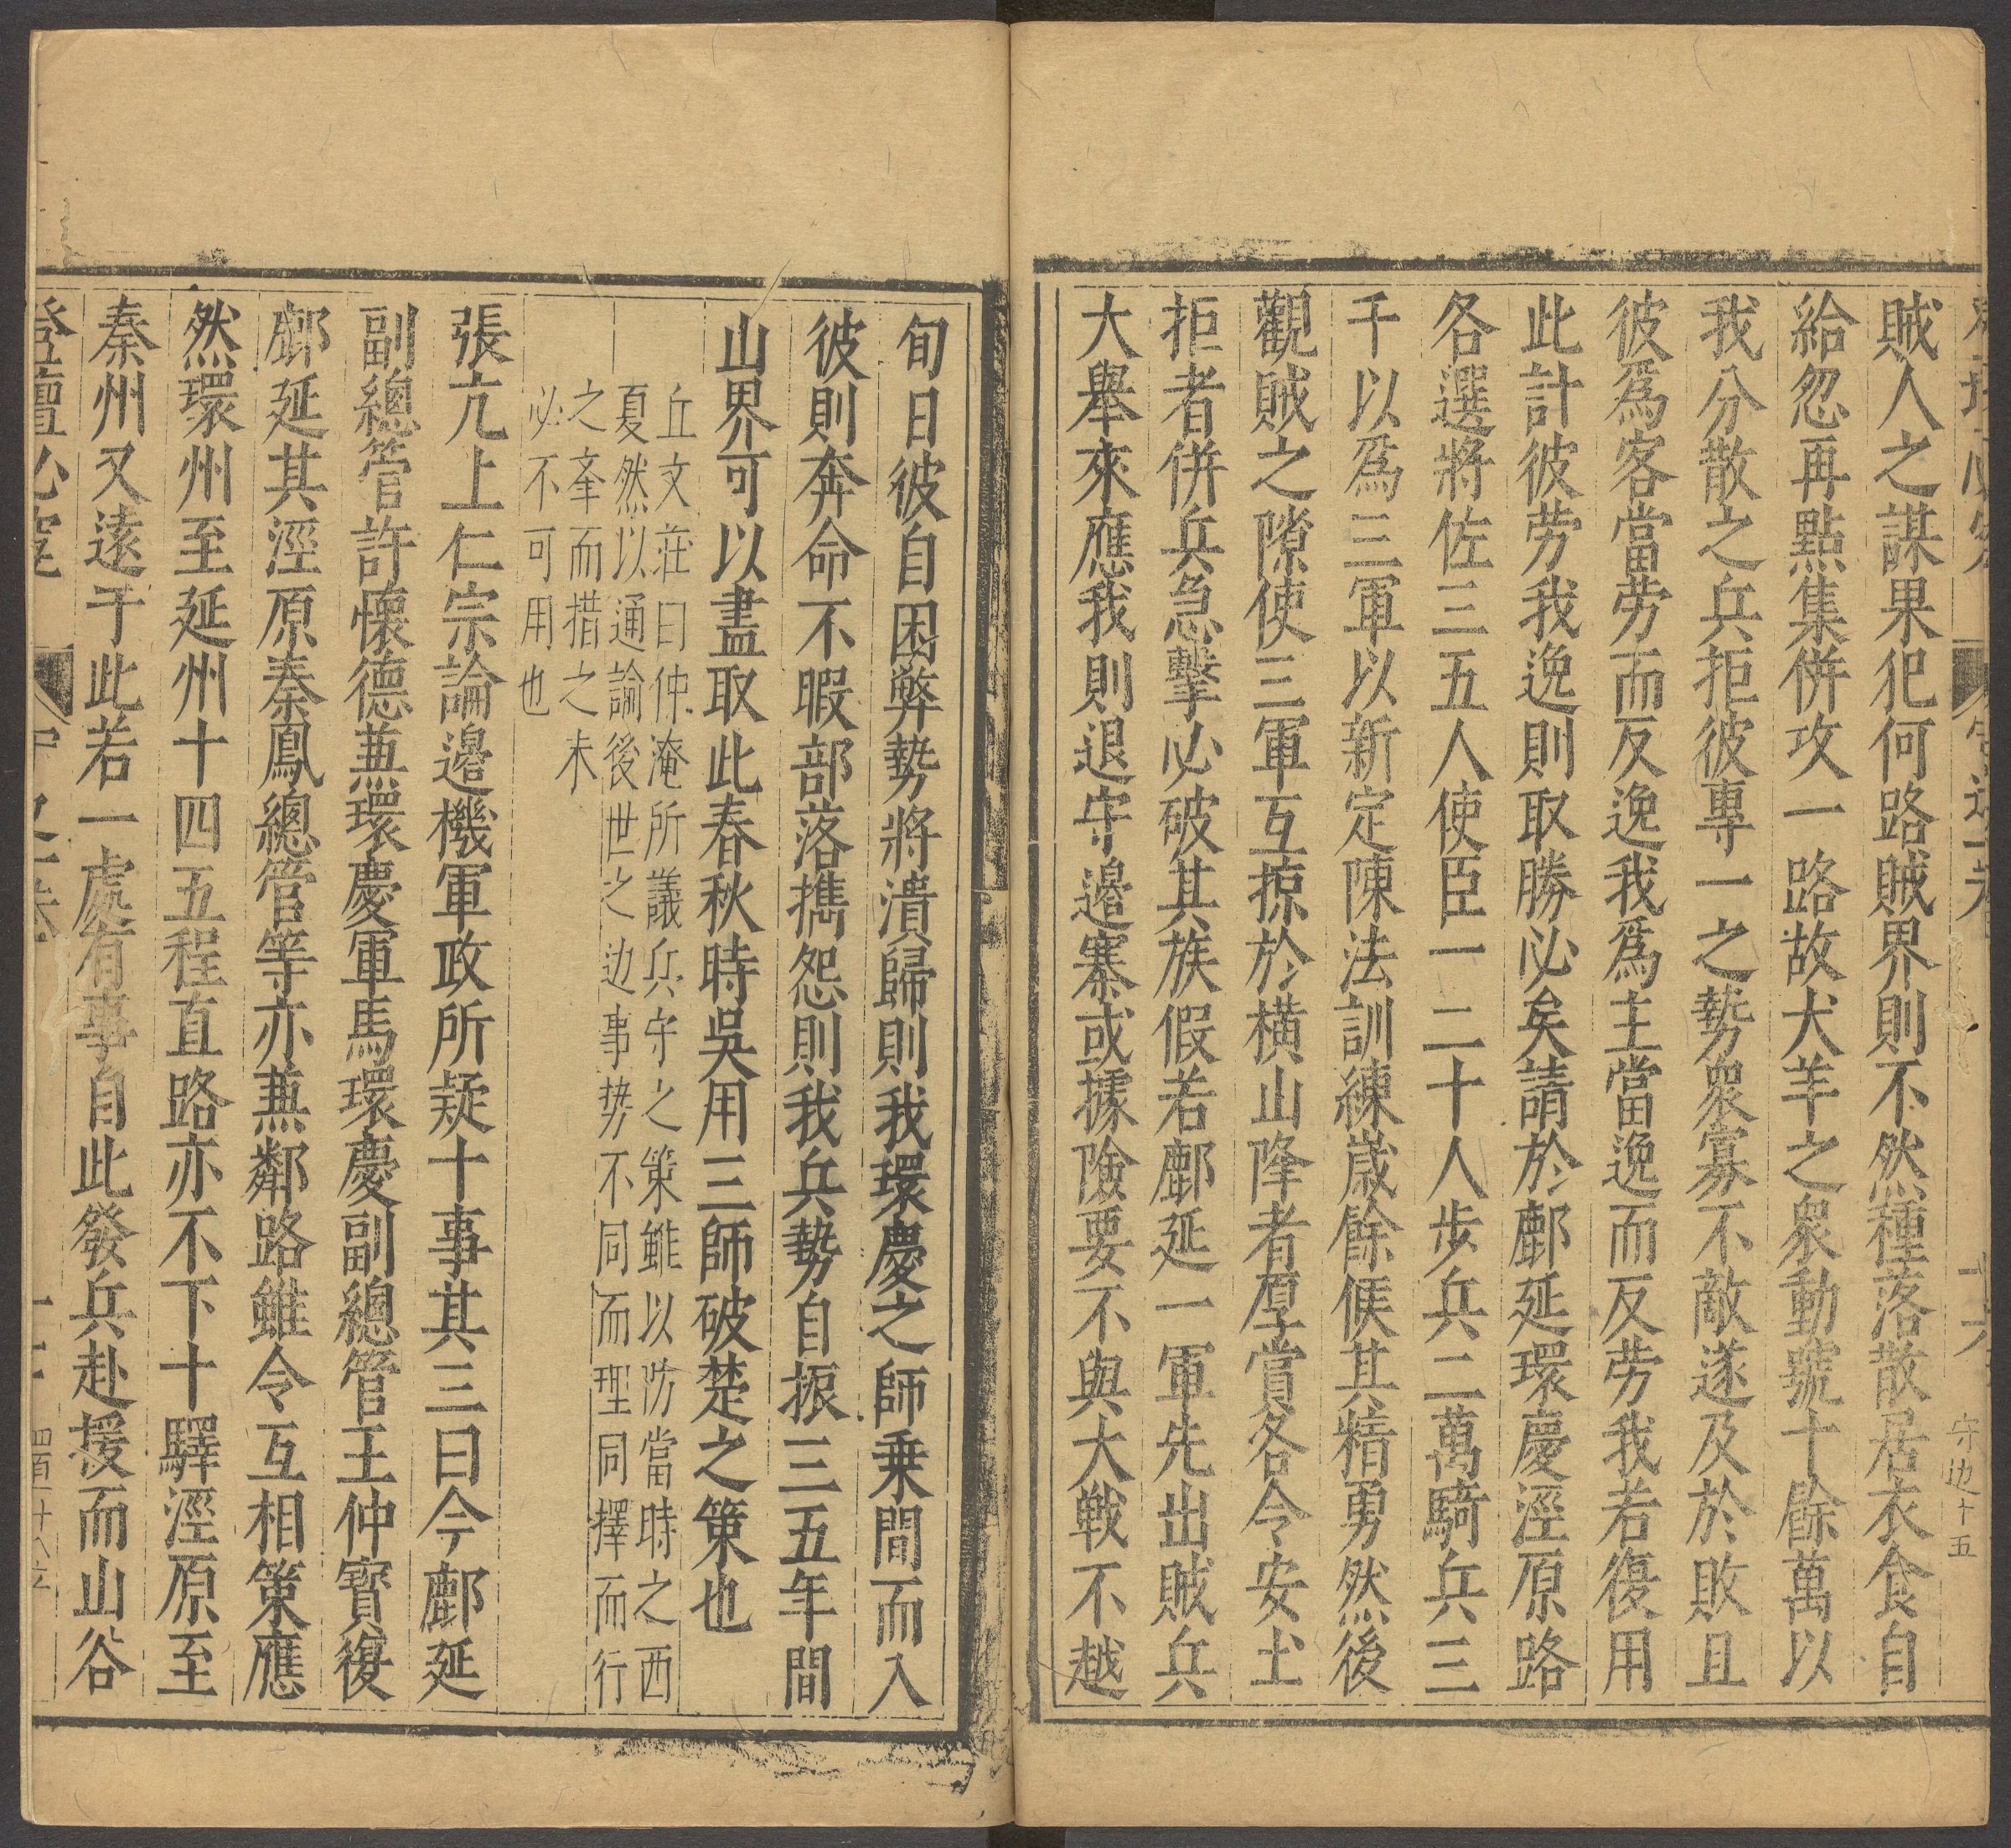 賊人之謀果犯何路賊界則不然種落散居衣食自
給忽再點集併攻一路故犬羊之衆動號十餘萬以
我分散之兵拒彼專一之勢衆寡不敵遂及於敗且
彼爲客當劳而反逸我爲主當逸而反劳我若復用
此計彼劳我逸則取勝必矣請於鄜延環慶涇原路
各選將佐三五人使臣一二十人步兵二萬騎兵三
千以爲三軍以新定陳法訓練歲餘候其精勇然後
觀賊之隙使三軍互掠於橫山降者厚賞各令安土
拒者併兵急擊必破其族假若鄜延一軍先出賊兵
大舉來應我則退守邊寨或據險要不與大戰不越
守边十五
旬日彼自困弊勢將潰歸則我環慶之師乗間而入
彼則奔命不暇部落攜怨則我兵勢自振三五年間
山界可以盡取此春秋時吳用三師破楚之策也
丘文莊曰仲淹所議兵守之策雖以防當時之西
夏然以通論後世之边事势不同而理同擇而行
之牽而措之未
必不可用也
張亢上仁宗論邊機軍政所疑十事其三曰今鄜延
副總管許懷德兼環慶軍馬環慶副總管王仲寶復
鄜延其涇原秦鳳總管等亦兼鄰路雖令互相策應
然環州至延州十四五程直路亦不下十驛涇原至
秦州又遠于此若一處有事自此發兵赴援而山谷